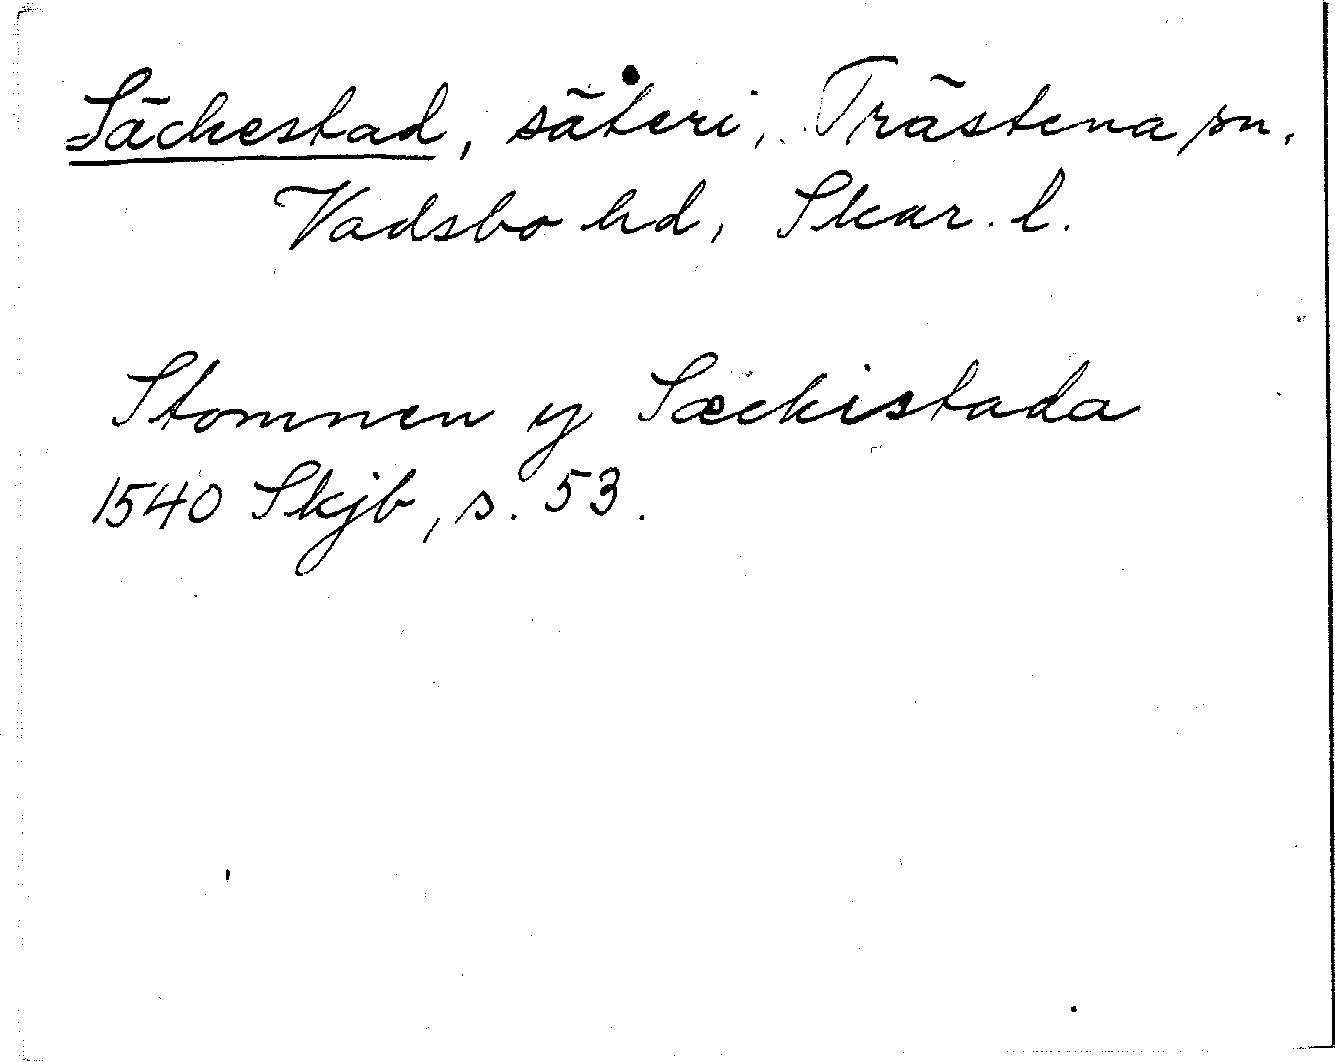 Säckestad, säteri, Trästena sn.
Vadsbo hd, Skar. l.
Stommen y Sæckistada
1540 Skjb, s. 53.